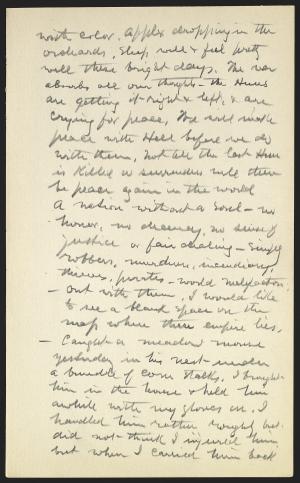 with color. Apples dropping in the
orchards. Sleep well & feel pretty
well these bright days. The war
absorbs all our thoughts — the Huns
are getting it right & left, & are
crying for peace. We will make
peace with Hell before we do
with them. Not till the last Hun
is killed or surrenders will there
be peace again in the world
A nation without a soul — no
honor, no decency, no sense of
justice or fair dealing — simply
robbers, murderers, incendiary,
thieves, pirates — world malefactors;
— out with them, I would like
to see a blank space on the
map where their empire lies.
— Caught a meadow mouse
yesterday in his nest under
a bundle of corn stalks. I brought
him in the house & held him
awhile with my gloves on. I
handled him rather rough, but
did not think I injured him,
but when I carried him back